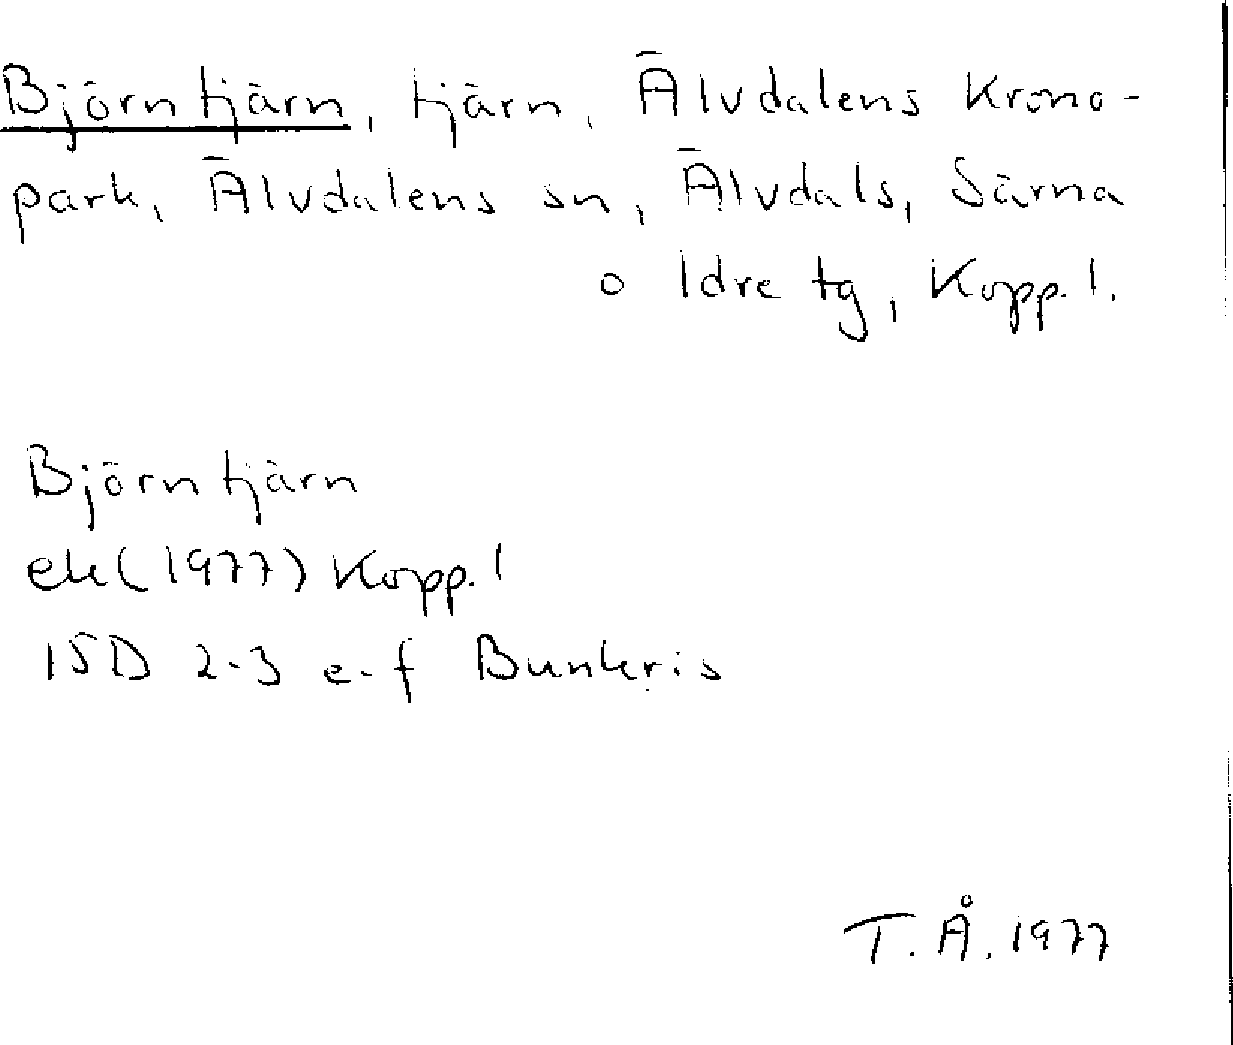 Björntjärn, tjärn, Älvdalens Krono-
park, Älvdalens sn, Älvdals, Särna
o Idre tg, Kopp. l.
Björntjärn
ek (1977) Kopp. l
15D 2-3 e-f Bunkris
T. Å. 1977